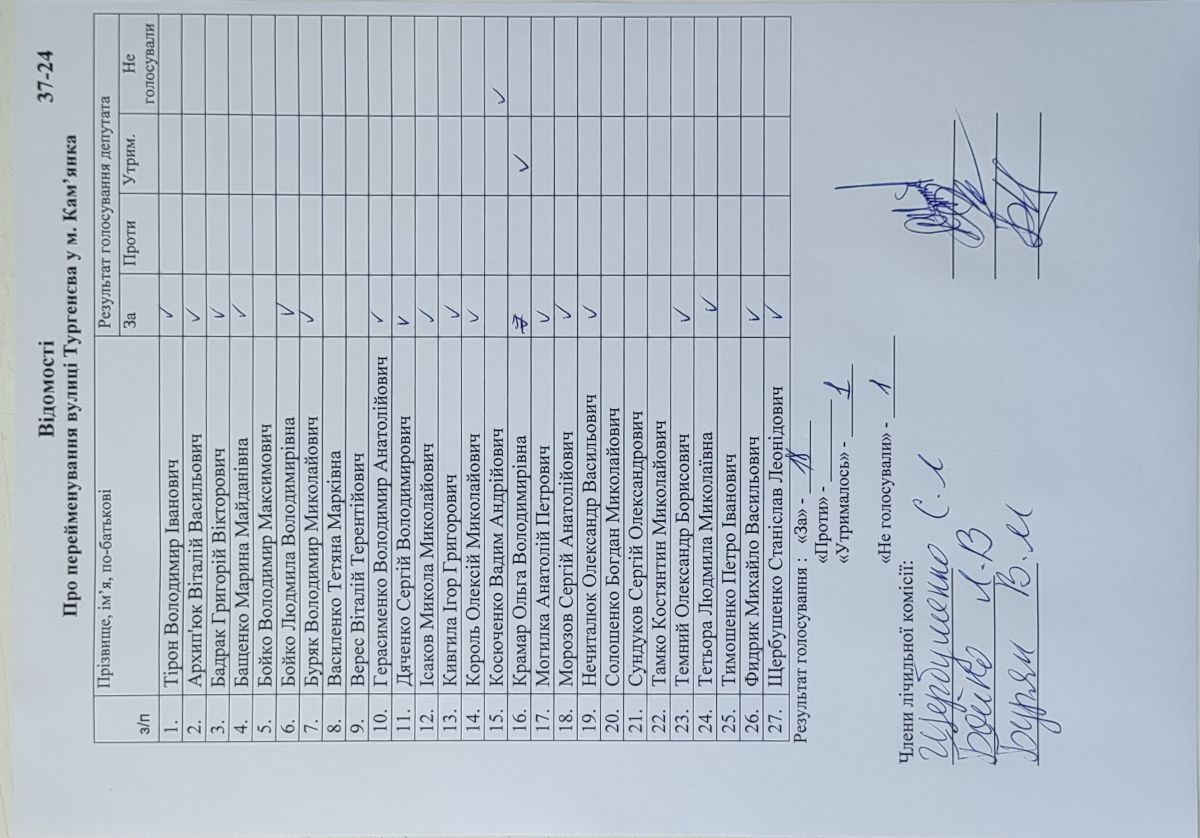 Відомості 37-24
Про перейменування вулиці Тургенєва у м. Кам’янка
з/п Прізвище, ім’я, по-батькові Результат голосування депутата
За Проти Утрим. Не голосували
1. Тірон Володимир Іванович ✓
2. Архип'юк Віталій Васильович ✓
3. Бадрак Григорій Вікторович ✓
4. Бащенко Марина Майданівна ✓
5. Бойко Володимир Максимович
6. Бойко Людмила Володимирівна ✓
7. Буряк Володимир Миколайович ✓
8. Василенко Тетяна Марківна
9. Верес Віталій Терентійович
10. Герасименко Володимир Анатолійович ✓
11. Дяченко Сергій Володимирович ✓
12. Ісаков Микола Миколайович ✓
13. Кивгила Ігор Григорович ✓
14. Король Олексій Миколайович ✓
15. Косюченко Вадим Андрійович ✓
16. Крамар Ольга Володимирівна ✓
17. Могилка Анатолій Петрович ✓
18. Морозов Сергій Анатолійович ✓
19. Нечиталюк Олександр Васильович ✓
20. Солошенко Богдан Миколайович
21. Сундуков Сергій Олександрович
22. Тамко Костянтин Миколайович
23. Темний Олександр Борисович ✓
24. Тетьора Людмила Миколаївна ✓
25. Тимошенко Петро Іванович
26. Фидрик Михайло Васильович ✓
27. Щербушенко Станіслав Леонідович ✓
Результат голосування : «За» - 18
«Проти» -
«Утрималось» - 1
«Не голосували» - 1
Члени лічильної комісії:
Щербушенко С.Л
Бойко Л.В
Буряк В.М